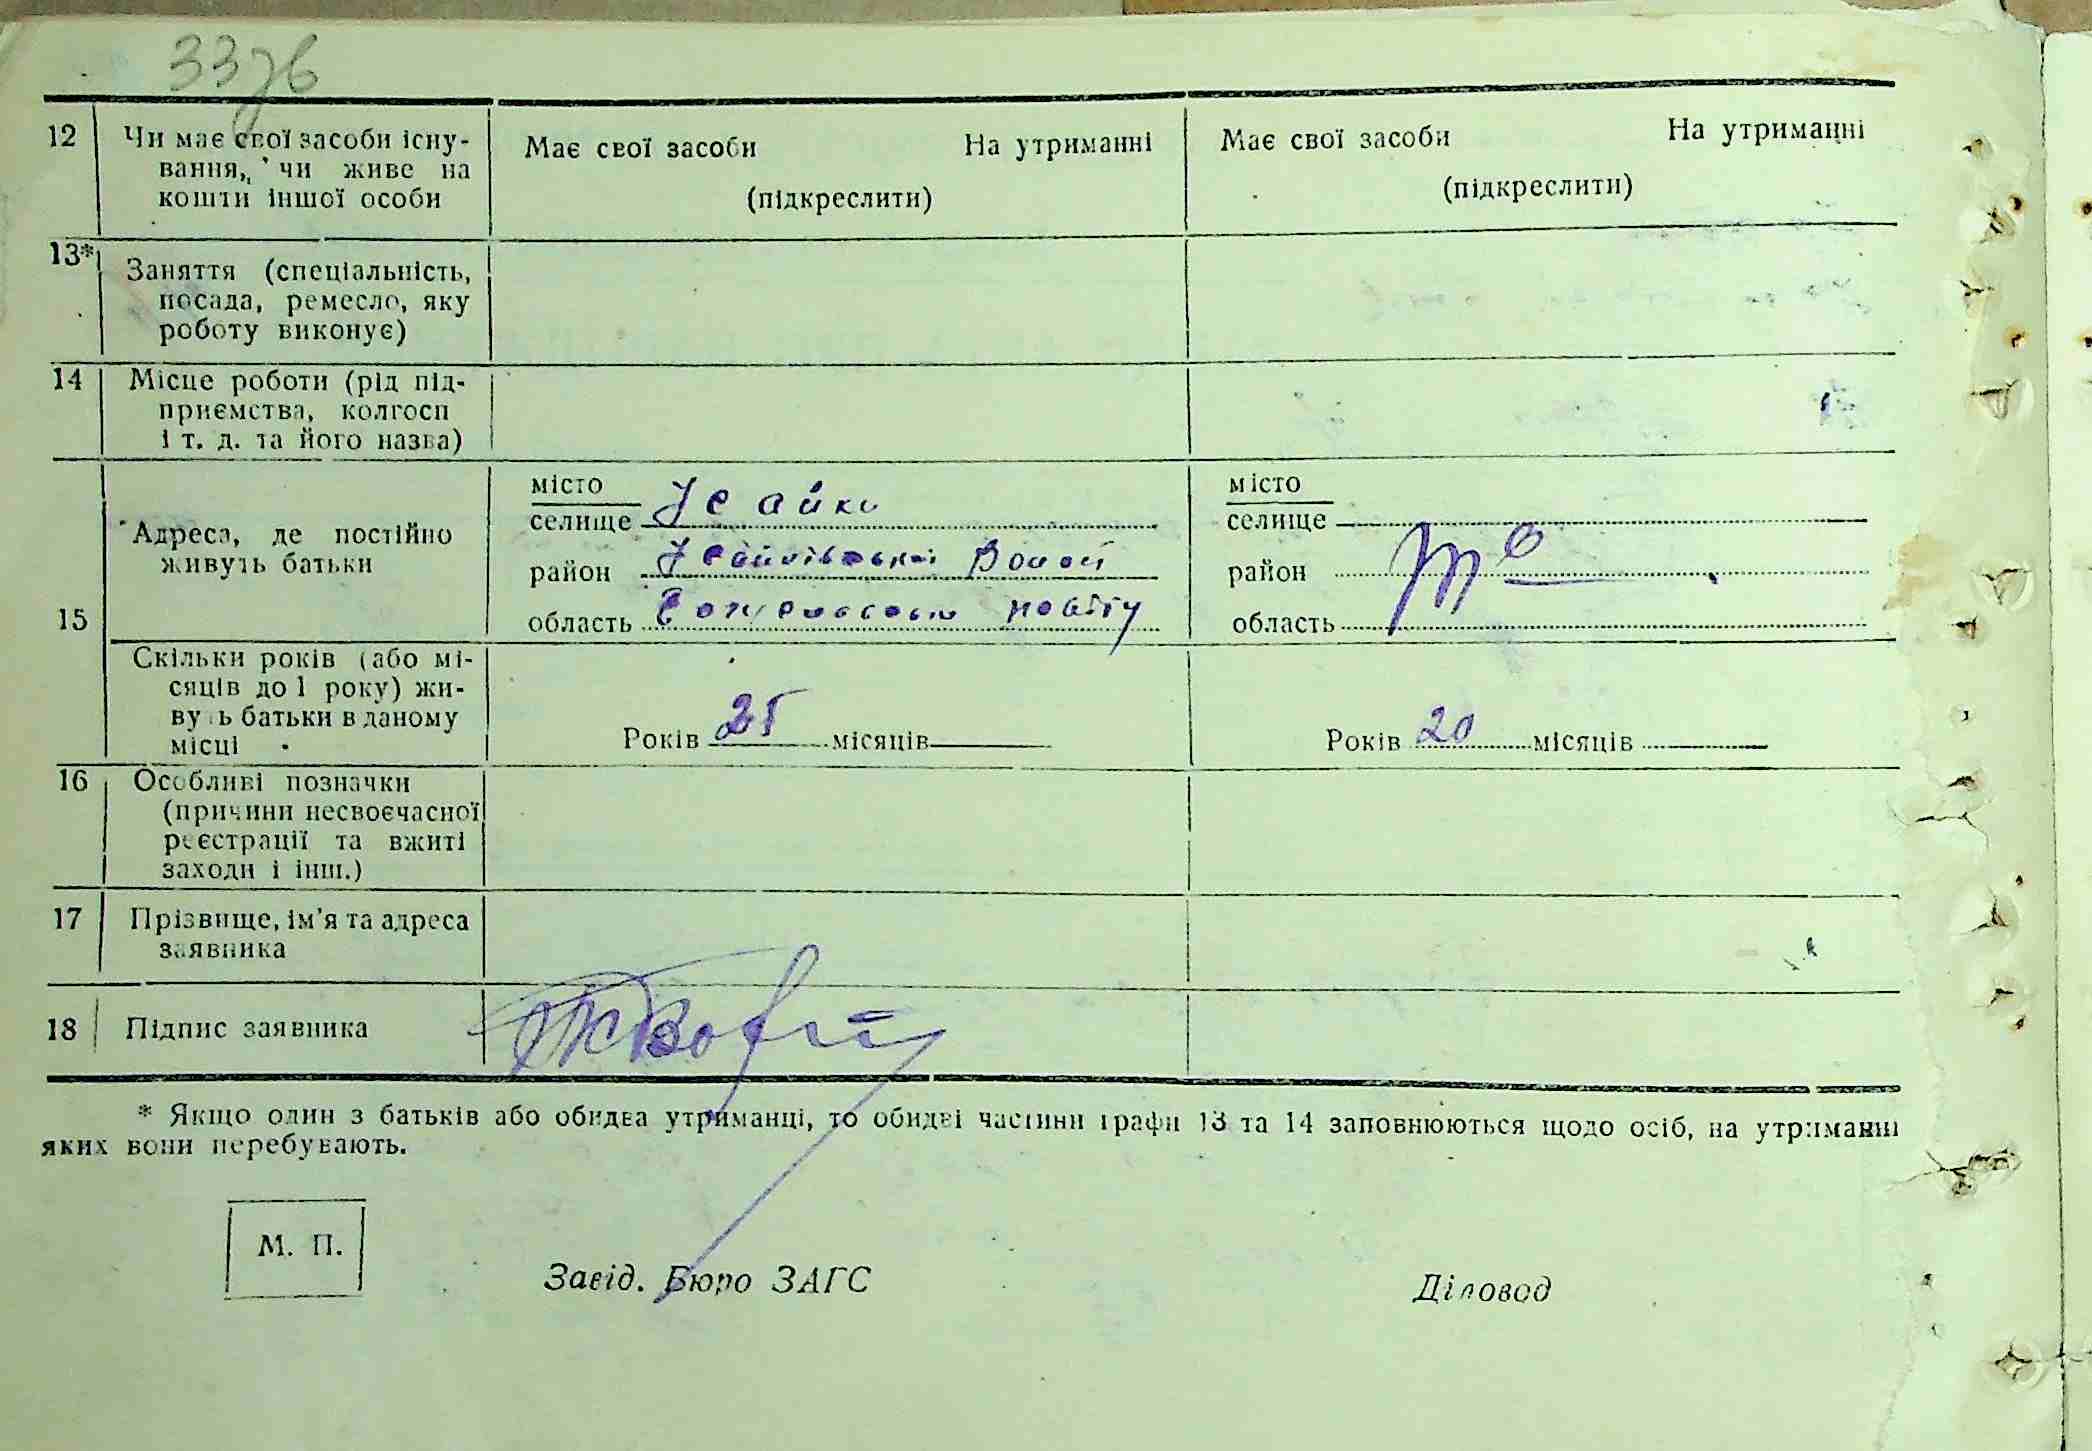 33зв
12 Чи має свої засоби існу-
вання, чи живе на
кошти іншої особи
Має свої засоби На утриманні
(підкреслити)
Має свої засоби На утриманні
(підкреслити)
13* Заняття (спеціальність,
посада, ремесло, яку
роботу виконує)
14 Місце роботи (рід під-
приємства, колгосп
і т. д. та його назва)
15 Адреса, де постійно
живуть батьки
місто
селище Усайки
район Волості
область повіту
місто
селище
район
область
Скільки років (або мі-
сяців до 1 року) жи-
вуть батьки в даному
місці
Років 25 місяців
Років 20 місяців
16 Особливі позначки
(причини несвоєчасної
реєстрації та вжиті
заходи і інш.)
17 Прізвище, ім'я та адреса
заявника
18 Підпис заявника
* Якщо один з батьків або обидва утриманці, то обидві частини графи 13 та 14 заповнюються щодо осіб, на утриманні
яких вони перебувають.
М. П.
Завід. Бюро ЗАГС
Діловод